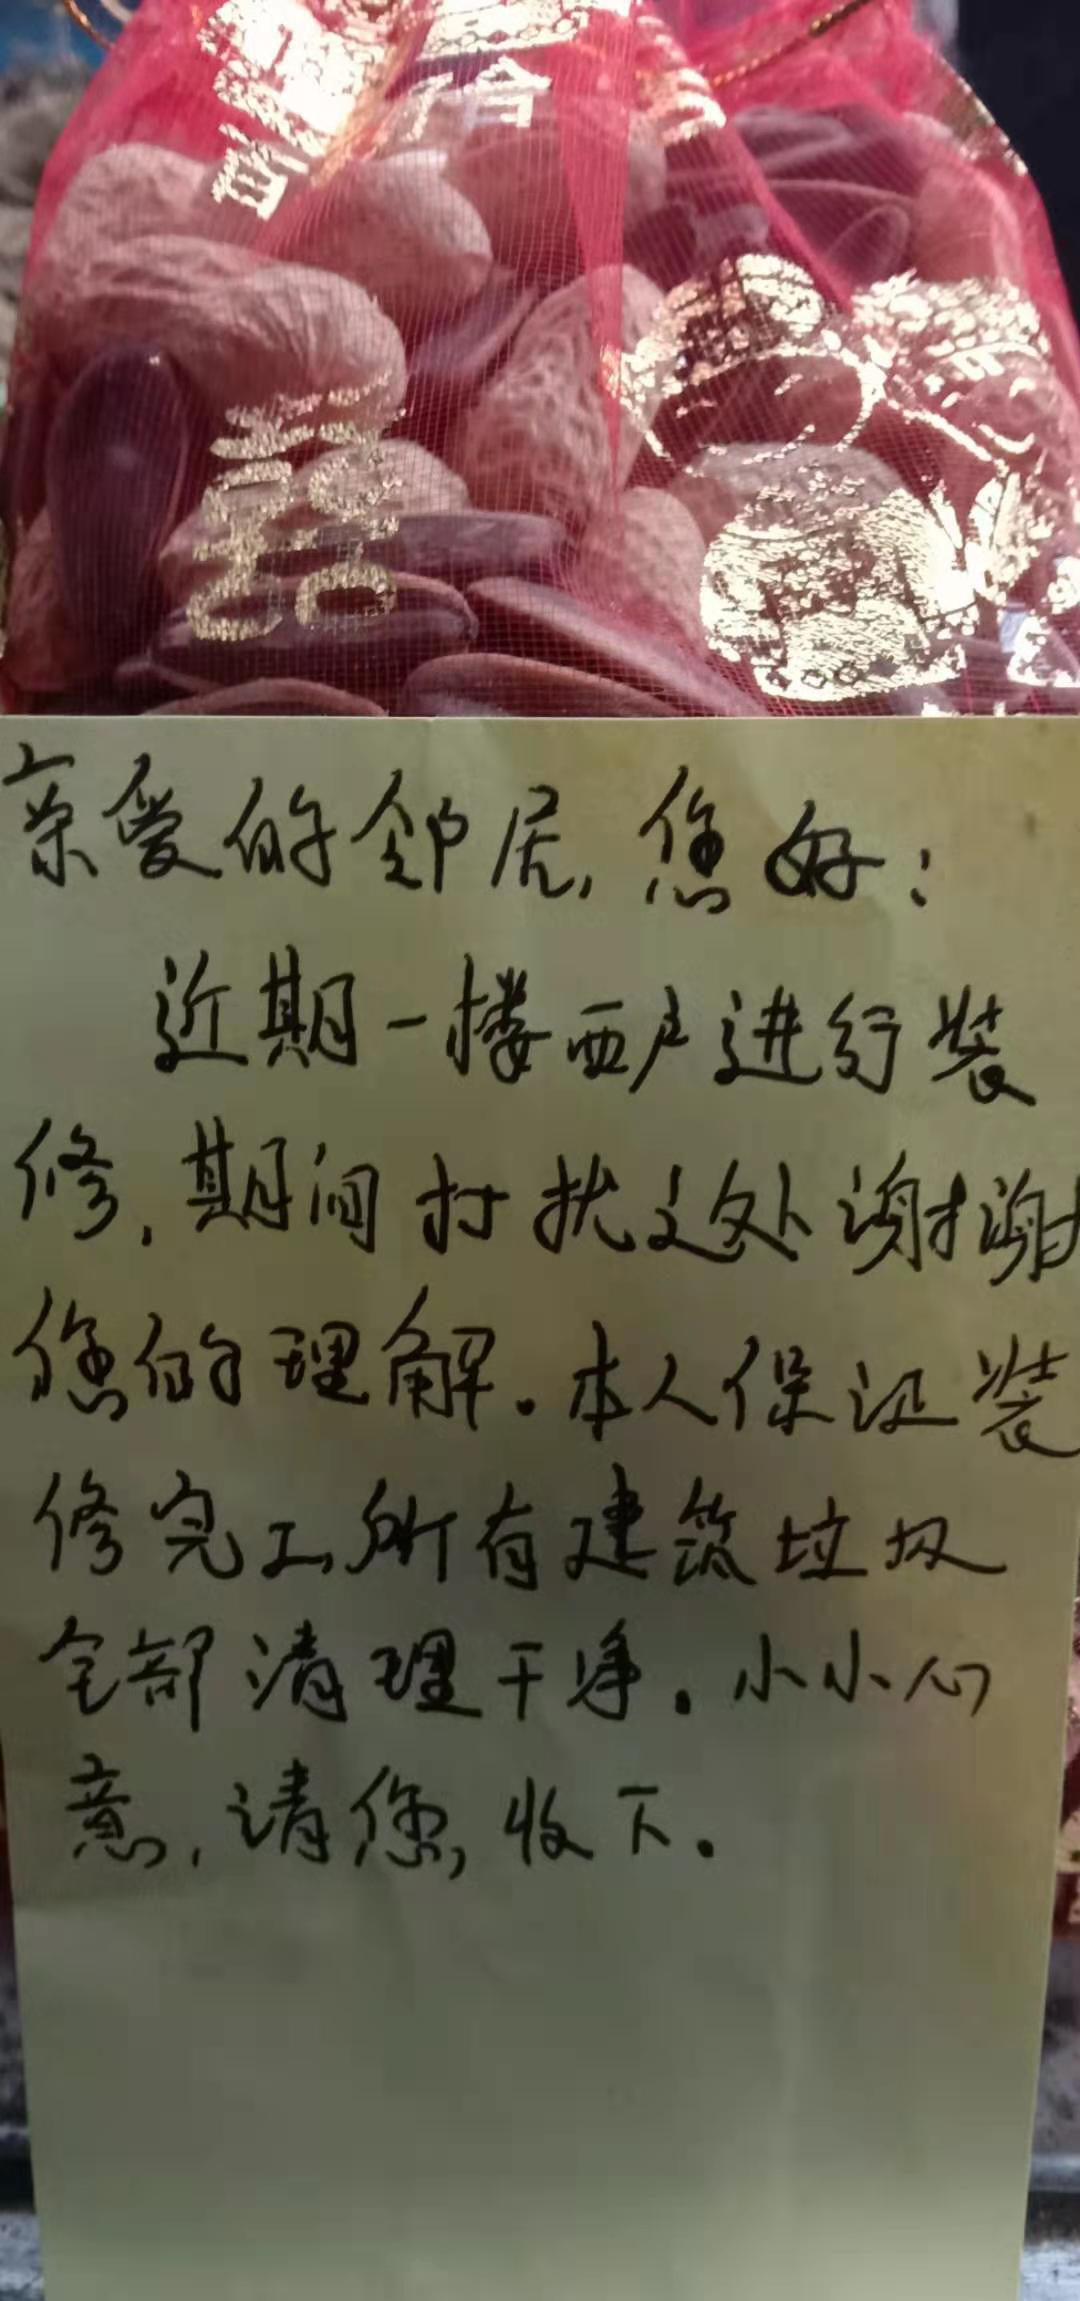 囍
亲爱的邻居,您好:
近期一楼西户进行装
修,期间打扰之处谢谢
您的理解.本人保证装
修完工,所有建筑垃圾
全部清理干净.小小心
意,请您收下.